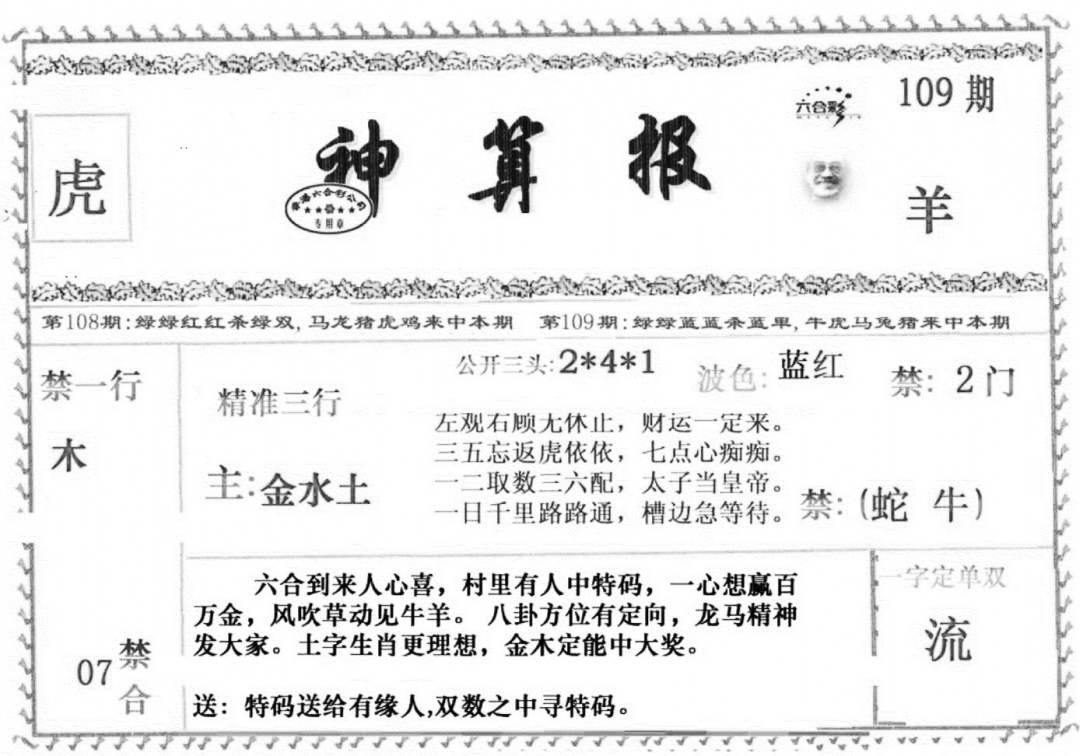 109期
六合彩
虎
神算报
香港六合彩公司
专用章
羊
第108期:绿绿红红杀绿双,马龙猪虎鸡来中本期 第109期:绿绿蓝蓝杀蓝单,牛虎马兔猪来中本期
禁一行
木
精准三行
主:金水土
公开三头:2*4*1
波色:蓝红
禁:2门
左观右顾无休止，财运一定来。
三五忘返虎依依，七点心痴痴。
一二取数三六配，太子当皇帝。
一日千里路路通，槽边急等待。
禁:(蛇 牛)
六合到来人心喜，村里有人中特码，一心想赢百
万金，风吹草动见牛羊。八卦方位有定向，龙马精神
发大家。土字生肖更理想，金木定能中大奖。
送：特码送给有缘人,双数之中寻特码。
07禁合
一字定单双
流